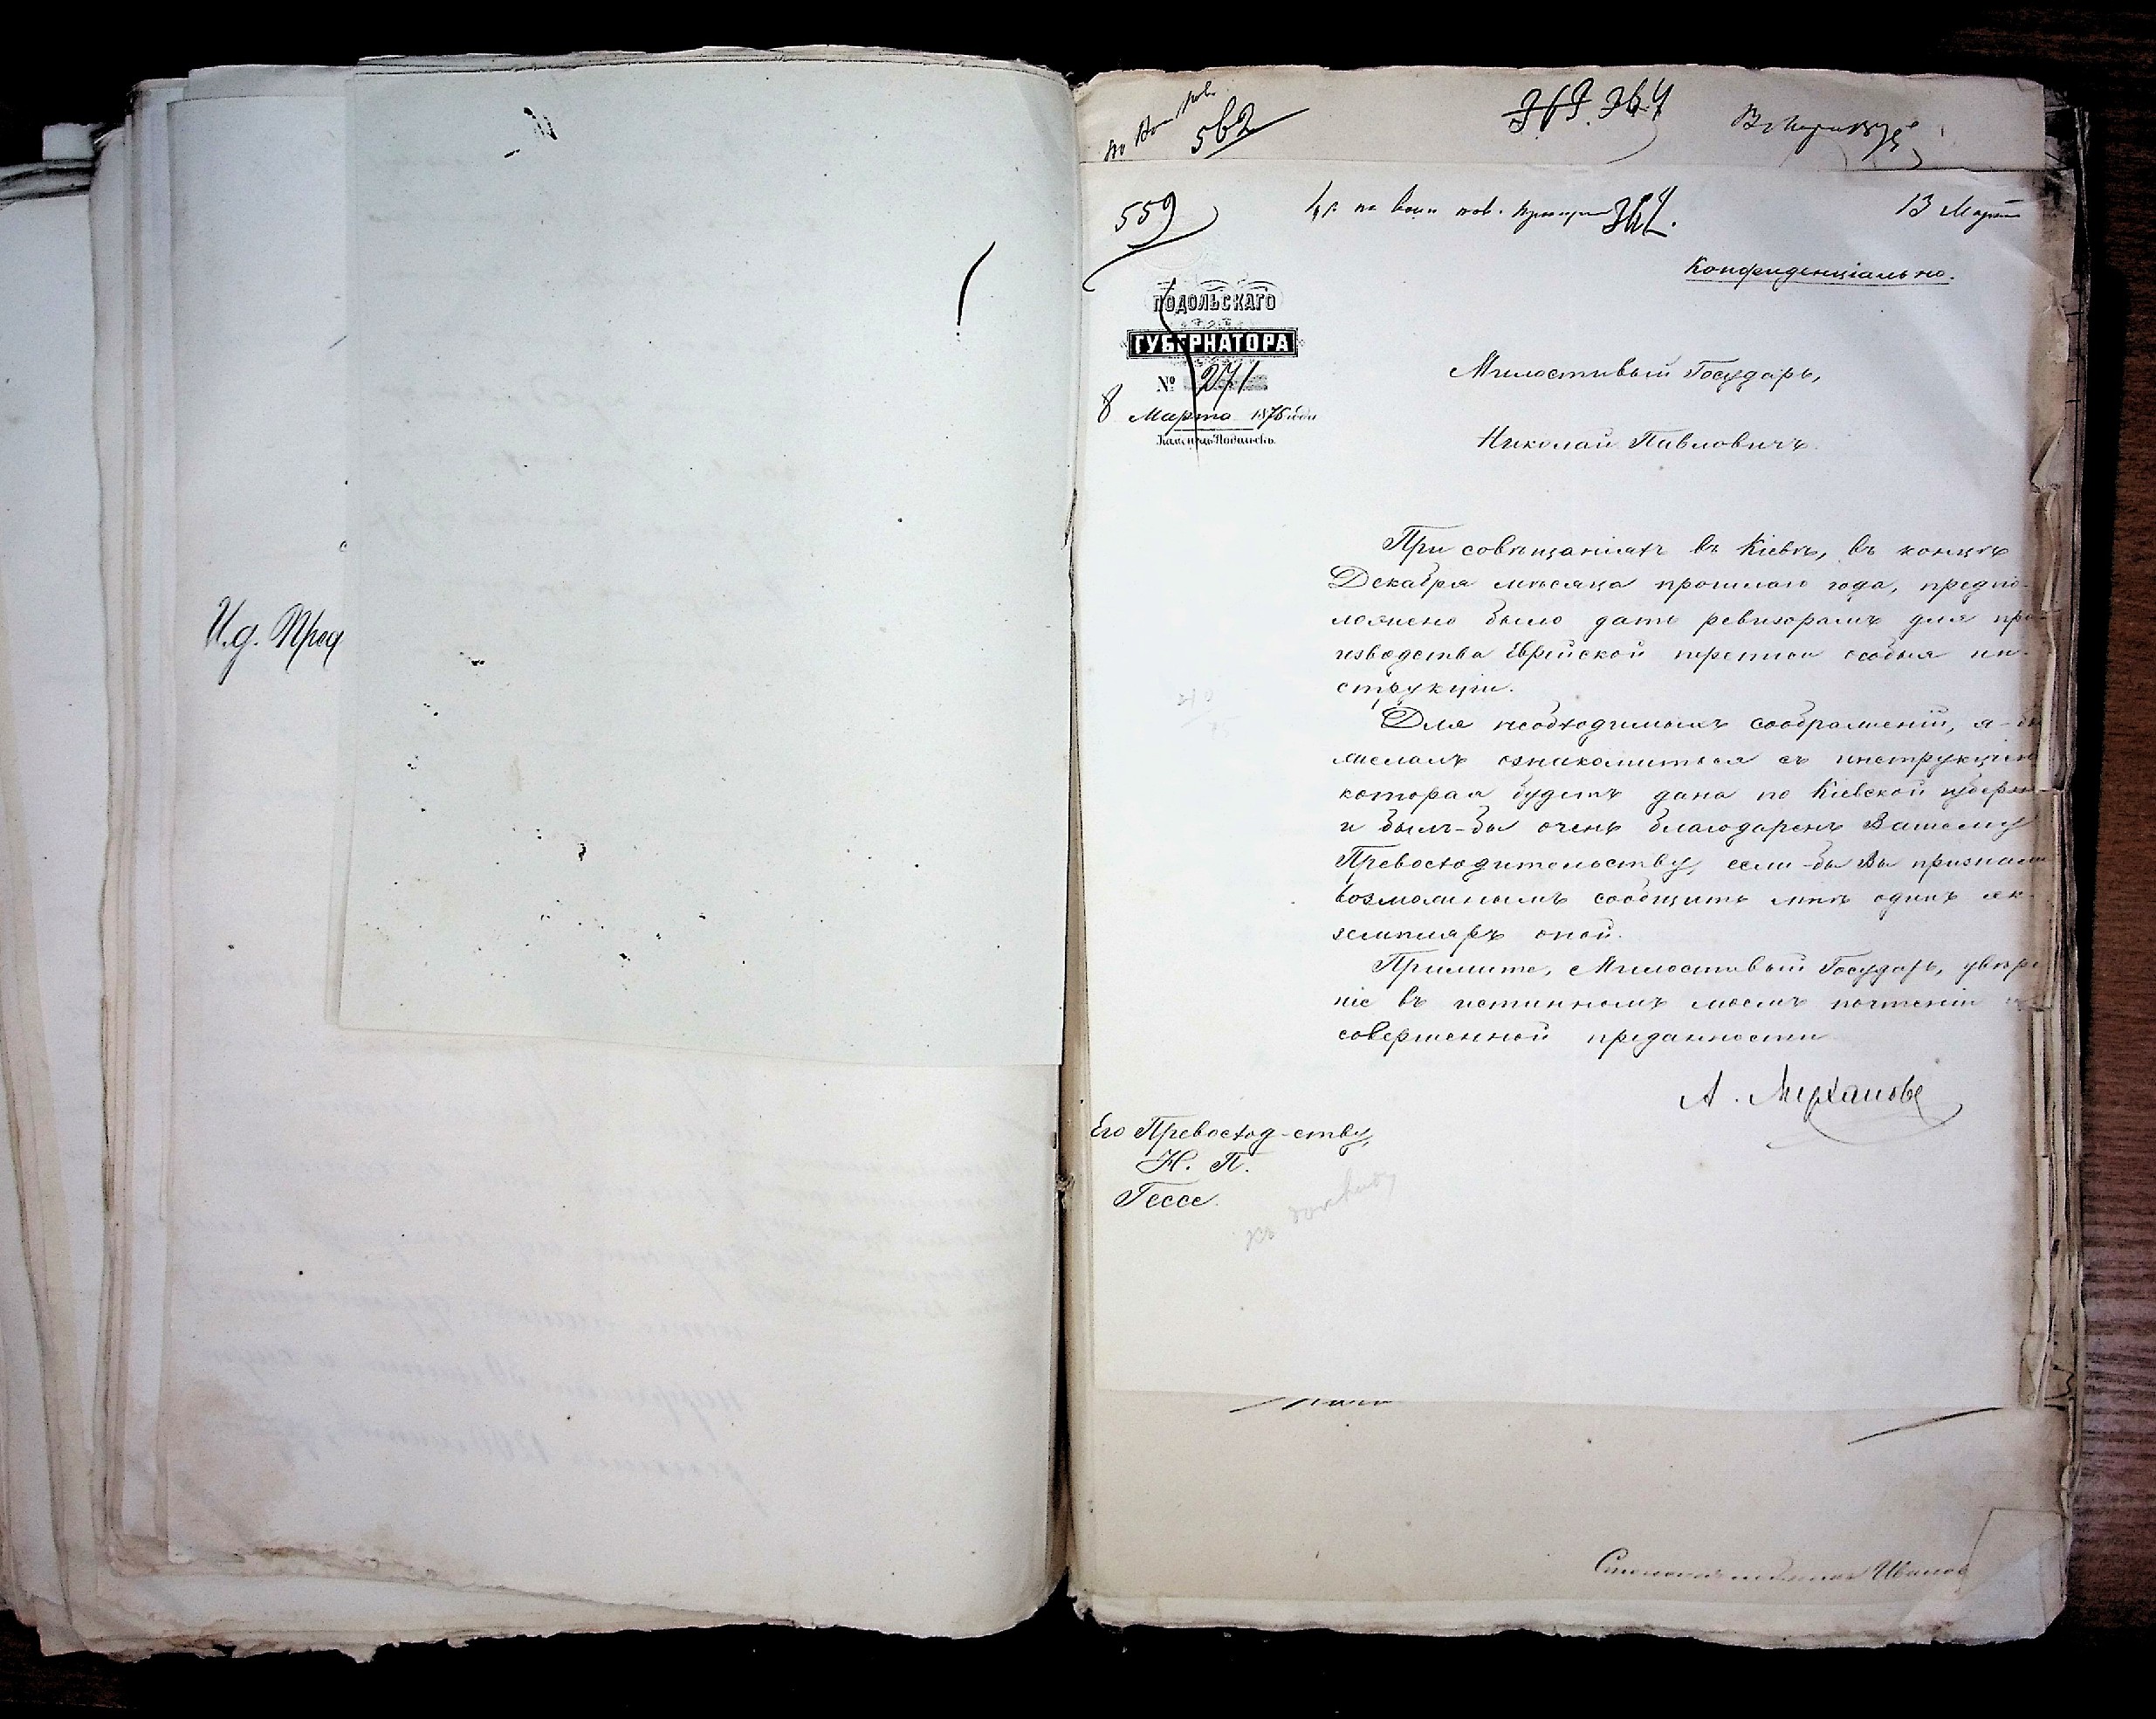 И.д. Пред
562
364
559
364.
13 Марта
Конфиденціально.
ПОДОЛЬСКАГО
ГУБЕРНАТОРА
№ 271
8 Марта 1876 года
Каменецъ-Подольскъ.
Милостивый Государь,
Николай Павловичъ.
При совѣщаніяхъ въ Кіевѣ, въ концѣ
Декабря мѣсяца прошлаго года, предпо-
ложено было дать ревизорамъ для про-
изводства Еврейской переписи особыя ин-
струкціи.
Для необходимыхъ соображеній, я-бы
желалъ ознакомиться съ инструкціею
которая будетъ дана по Кіевской губерн
и былъ-бы очень благодаренъ Вашему
Превосходительству, если-бы Вы признали
возможнымъ сообщить мнѣ одинъ эк-
земпляръ оной.
Примите, Милостивый Государь, увѣре
ніе въ истинномъ моемъ почтеніи и
совершенной преданности
Его Превосход-ству,
Н. П.
Гессе.
къ докладу
Иванов